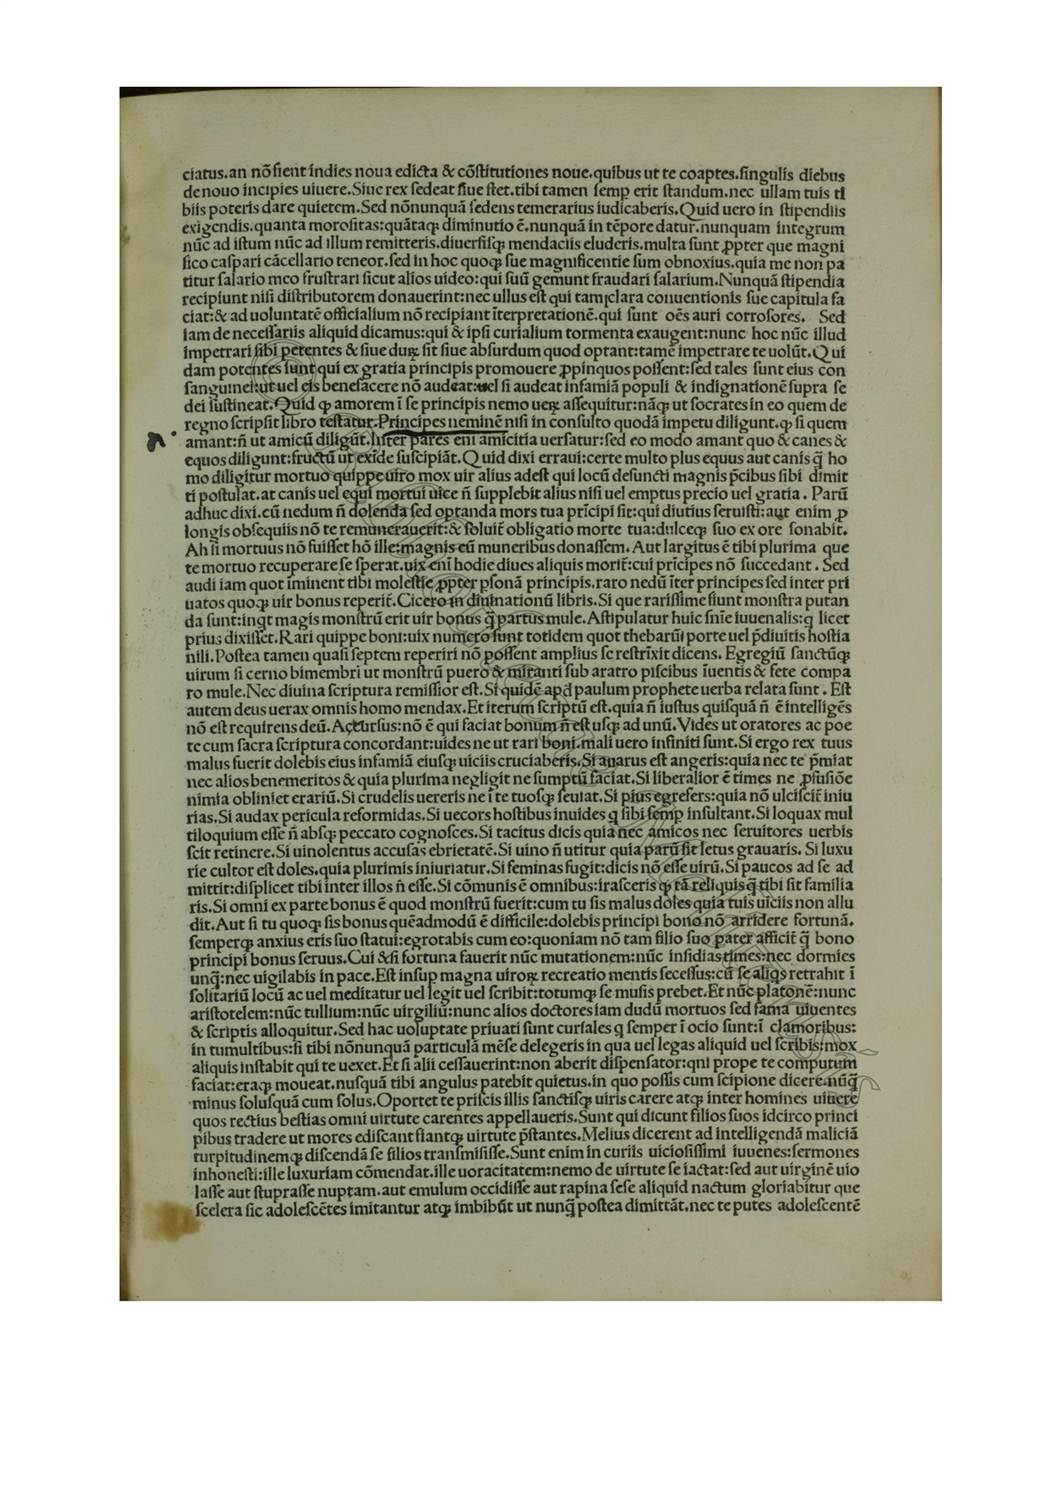 ciatus.an nō fient indies noua edicta & cōſtitutiones noue.quibus ut te coaptes.ſingulis diebus
de nouo incipies uiuere.Siue rex ſedeat ſiue ſtet.tibi tamen ſemꝑ erit ſtandum.nec ullam tuis ti
biis poteris dare quietem.Sed nōnunquā ſedens temerarius iudicaberis.Quid uero in ſtipendiis
exigendis.quanta moroſitas:quātaqꝫ diminutio ē.nunquā in tēpore datur.nunquam integrum
nūc ad iſtum nūc ad illum remitteris.diuerſiſqꝫ mendaciis eluderis.multa ſunt ꝓpter que magni
fico caſpari cācellario teneor.ſed in hoc quoqꝫ ſue magnificentie ſum obnoxius.quia me non pa
titur ſalario meo fruſtrari ſicut alios uideo:qui ſuū gemunt fraudari ſalarium.Nunquā ſtipendia
recipiunt niſi diſtributorem donauerint:nec ullus eſt qui tam clara conuentionis ſue capitula fa
ciat:& ad uoluntatē officialium nō recipiant īterpretationē.qui ſunt oēs auri corroſores. Sed
iam de neceſſariis aliquid dicamus:qui & ipſi curialium tormenta exaugent:nunc hoc nūc illud
impetrari ſibi petentes & ſiue duꝝ ſit ſiue abſurdum quod optant:tamē impetrare te uolūt.Qui
dam potentes ſunt qui ex gratia principis promouere ꝓpinquos poſſent:ſed tales ſunt eius con
ſanguinei:ut uel eis benefacere nō audeat:uel ſi audeat infamiā populi & indignationē ſupra ſe
dei ſuſtineat.Quid ꝙ amorem ī ſe principis nemo ueꝝ aſſequitur:nāqꝫ ut ſocrates in eo quem de
regno ſcripſit libro teſtatur.Principes neminē niſi in conſulto quodā impetu diligunt.ꝙ ſi quem
amant:n̄ ut amicū diligūt.Inter pares eni amicitia uerſatur:ſed eo modo amant quo & canes &
equos diligunt:fructū ut exīde ſuſcipiāt.Quid dixi erraui:certe multo plus equus aut canis ꝗ̄ ho
mo diligitur mortuo quippe uiro mox uir alius adeſt qui locū defuncti magnis p̄cibus ſibi dimit
ti poſtulat.at canis uel equi mortui uice n̄ ſupplebit alius niſi uel emptus precio uel gratia. Parū
adhuc dixi.cū nedum n̄ dolenda ſed optanda mors tua prīcipi ſit:qui diutius ſeruiſti:aut enim ꝓ
longis obſequiis nō te remunerauerit:& ſoluit̄ obligatio morte tua:dulceqꝫ ſuo ex ore ſonabit.
Ah ſi mortuus nō fuiſſet hō ille:magnis eū muneribus donaſſem.Aut largitus ē tibi plurima que
te mortuo recuperare ſe ſperat.uix enī hodie diues aliquis morit̄:cui prīcipes nō ſuccedant. Sed
audi iam quot īminent tibi moleſtie ꝓpter ꝑſonā principis.raro nedū īter principes ſed inter pri
uatos quoqꝫ uir bonus reperit̄.Cicero in diuinationū libris.Si que rariſſime fiunt monſtra putan
da ſunt:inqt magis monſtrū erit uir bonus ꝗ̄ partus mule.Aſtipulatur huic ſnīe iuuenalis:q licet
prius dixiſſet.Rari quippe boni:uix numero ſunt totidem quot thebarūī porte uel p̄diuitis hoſtia
nili.Poſtea tamen quaſi ſeptem reperiri nō poſſent amplius ſe reſtrīxit dicens. Egregiū ſanctūqꝫ
uirum ſi cerno bimembri ut monſtrū puero & miranti ſub aratro piſcibus īuentis & fete compa
ro mule.Nec diuina ſcriptura remiſſior eſt.Si quidē apd̄ paulum prophete uerba relata ſunt. Eſt
autem deus uerax omnis homo mendax.Et iterum ſcriptū eſt.quia n̄ iuſtus quiſquā n̄ ē intelligēs
nō eſt requirens deū.Ac rurſus:nō ē qui faciat bonum n̄ eſt uſqꝫ ad unū.Vides ut oratores ac poe
te cum ſacra ſcriptura concordant:uides ne ut rari boni.mali uero infiniti ſunt.Si ergo rex tuus
malus fuerit dolebis eius infamiā eiuſqꝫ uiciis cruciaberis.Si auarus eſt angeris:quia nec te p̄miat
nec alios benemeritos & quia plurima negligit ne ſumptū faciat.Si liberalior ē times ne ꝓfuſiōe
nimia obliniet erariū.Si crudelis uereris ne ī te tuoſqꝫ ſeuiat.Si pius egreſers:quia nō ulciſcit̄ iniu
rias.Si audax pericula reformidas.Si uecors hoſtibus inuides q ſibi ſemꝑ inſultant.Si loquax mul
tiloquium eſſe n̄ abſqꝫ peccato cognoſces.Si tacitus dicis quia nec amicos nec ſeruitores uerbis
ſcit retinere.Si uinolentus accuſas ebrietatē.Si uino n̄ utitur quia parū ſit letus grauaris. Si luxu
rie cultor eſt doles.quia plurimis iniuriatur.Si feminas fugit:dicis nō eſſe uirū.Si paucos ad ſe ad
mittit:diſplicet tibi inter illos n̄ eſſe.Si cōmunis ē omnibus:iraſceris ꝙ tā reliquis ꝗ̄ tibi ſit familia
ris.Si omni ex parte bonus ē quod monſtrū fuerit:cum tu ſis malus doles quia tuis uiciis non allu
dit.Aut ſi tu quoqꝫ ſis bonus quēadmodū ē difficile:dolebis principi bono nō arridere fortunā.
ſemperqꝫ anxius eris ſuo ſtatui:egrotabis cum eo:quoniam nō tam filio ſuo pater afficit̄ ꝗ̄ bono
principi bonus ſeruus.Cui &ſi fortuna fauerit nūc mutationem:nūc inſidias times:nec dormies
unꝗ̄:nec uigilabis in pace.Eſt inſup magna uiroꝝ recreatio mentis ſeceſſus:cū ſe aliqs retrahit ī
ſolitariū locū ac uel meditatur uel legit uel ſcribit:totumqꝫ ſe muſis prebet.Et nūc platonē:nunc
ariſtotelem:nūc tullium:nūc uirgiliū:nunc alios doctores iam dudū mortuos ſed fama uiuentes
& ſcriptis alloquitur.Sed hac uoluptate priuati ſunt curſales q ſemper ī ocio ſunt:ī clamoribus:
in tumultibus:ſi tibi nōnunquā particulā mēſe delegeris in qua uel legas aliquid uel ſcribis:mox
aliquis inſtabit qui te uexet.Et ſi alii ceſſauerint:non aberit diſpenſator:qni prope te computum
faciat:eraqꝫ moueat.nuſquā tibi angulus patebit quietus.in quo poſſis cum ſcipione dicere.nūꝗ̄
minus ſoluſquā cum ſolus.Oportet te priſcis illis ſanctiſqꝫ uiris carere atqꝫ inter homines uiuere
quos rectius beſtias omni uirtute carentes appellaueris.Sunt qui dicunt filios ſuos idcirco princi
pibus tradere ut mores ediſcant fiantqꝫ uirtute p̄ſtantes.Melius dicerent ad intelligendā maliciā
turpitudinemqꝫ diſcendā ſe filios tranſmiſiſſe.Sunt enim in curiis uicioſiſſimi iuuenes:ſermones
inhoneſti:ille luxuriam cōmendat.ille uoracitatem:nemo de uirtute ſe iactat:ſed aut uirginē uio
laſſe aut ſtupraſſe nuptam.aut emulum occidiſſe aut rapina ſeſe aliquid nactum gloriabitur que
ſcelera ſic adoleſcētes imitantur atqꝫ imbibūt ut nunꝗ̄ poſtea dimittāt.nec te putes adoleſcentē